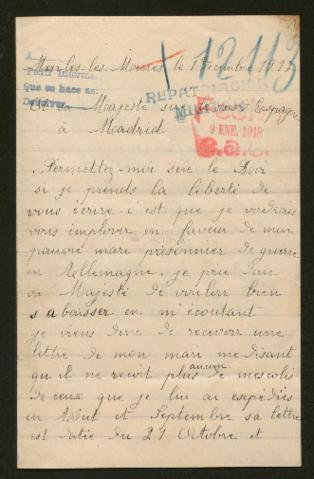 Marles-les-Mines le 1 Décembre 1917
+ 12113
Pedir informe
Que se hace así
Devolver
REPATRIACIÓN
MILITARES
9 ENE. 1918
Majesté le Roi d'Espagne
à Madrid
Permettez-moi Sire le Roi
si je prends la liberté de
vous écrire c'est que je voudrais
vous implorer en faveur de mon
pauvre mari prisonnier de guerre
en Allemagne. je prie donc
sa Majesté de vouloir bien
s'abaisser en m'écoutant
je viens donc de recevoir une
lettre de mon mari me disant
qu'il ne reçoit plus aucun de mes colis
de ceux que je lui ai expédiés
en Août et Septembre sa lettre
est datée du 21 Octobre et